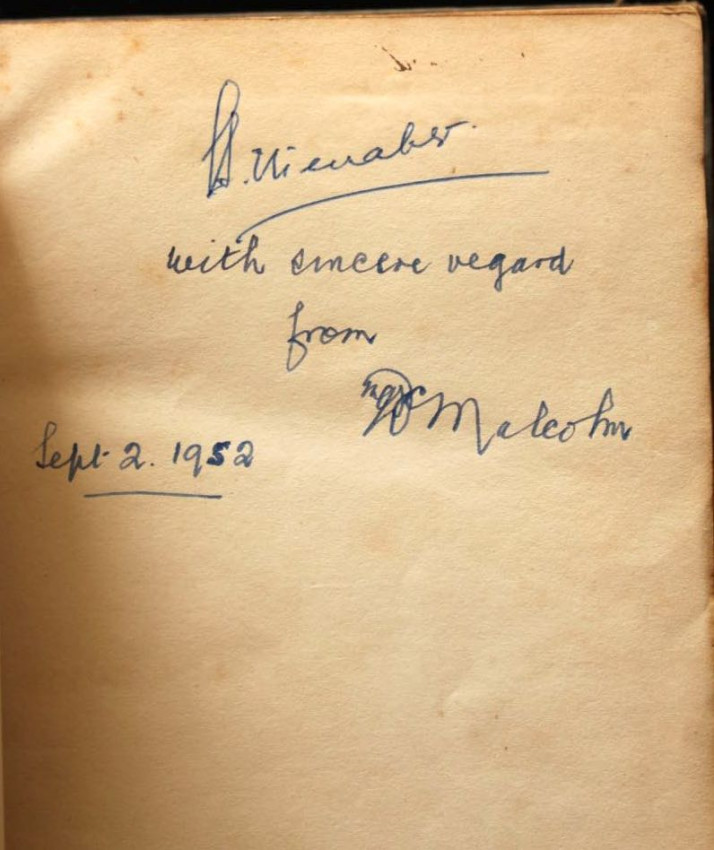 Nienaber.
with sincere regard
from
Malcolm
Sept 2. 1952